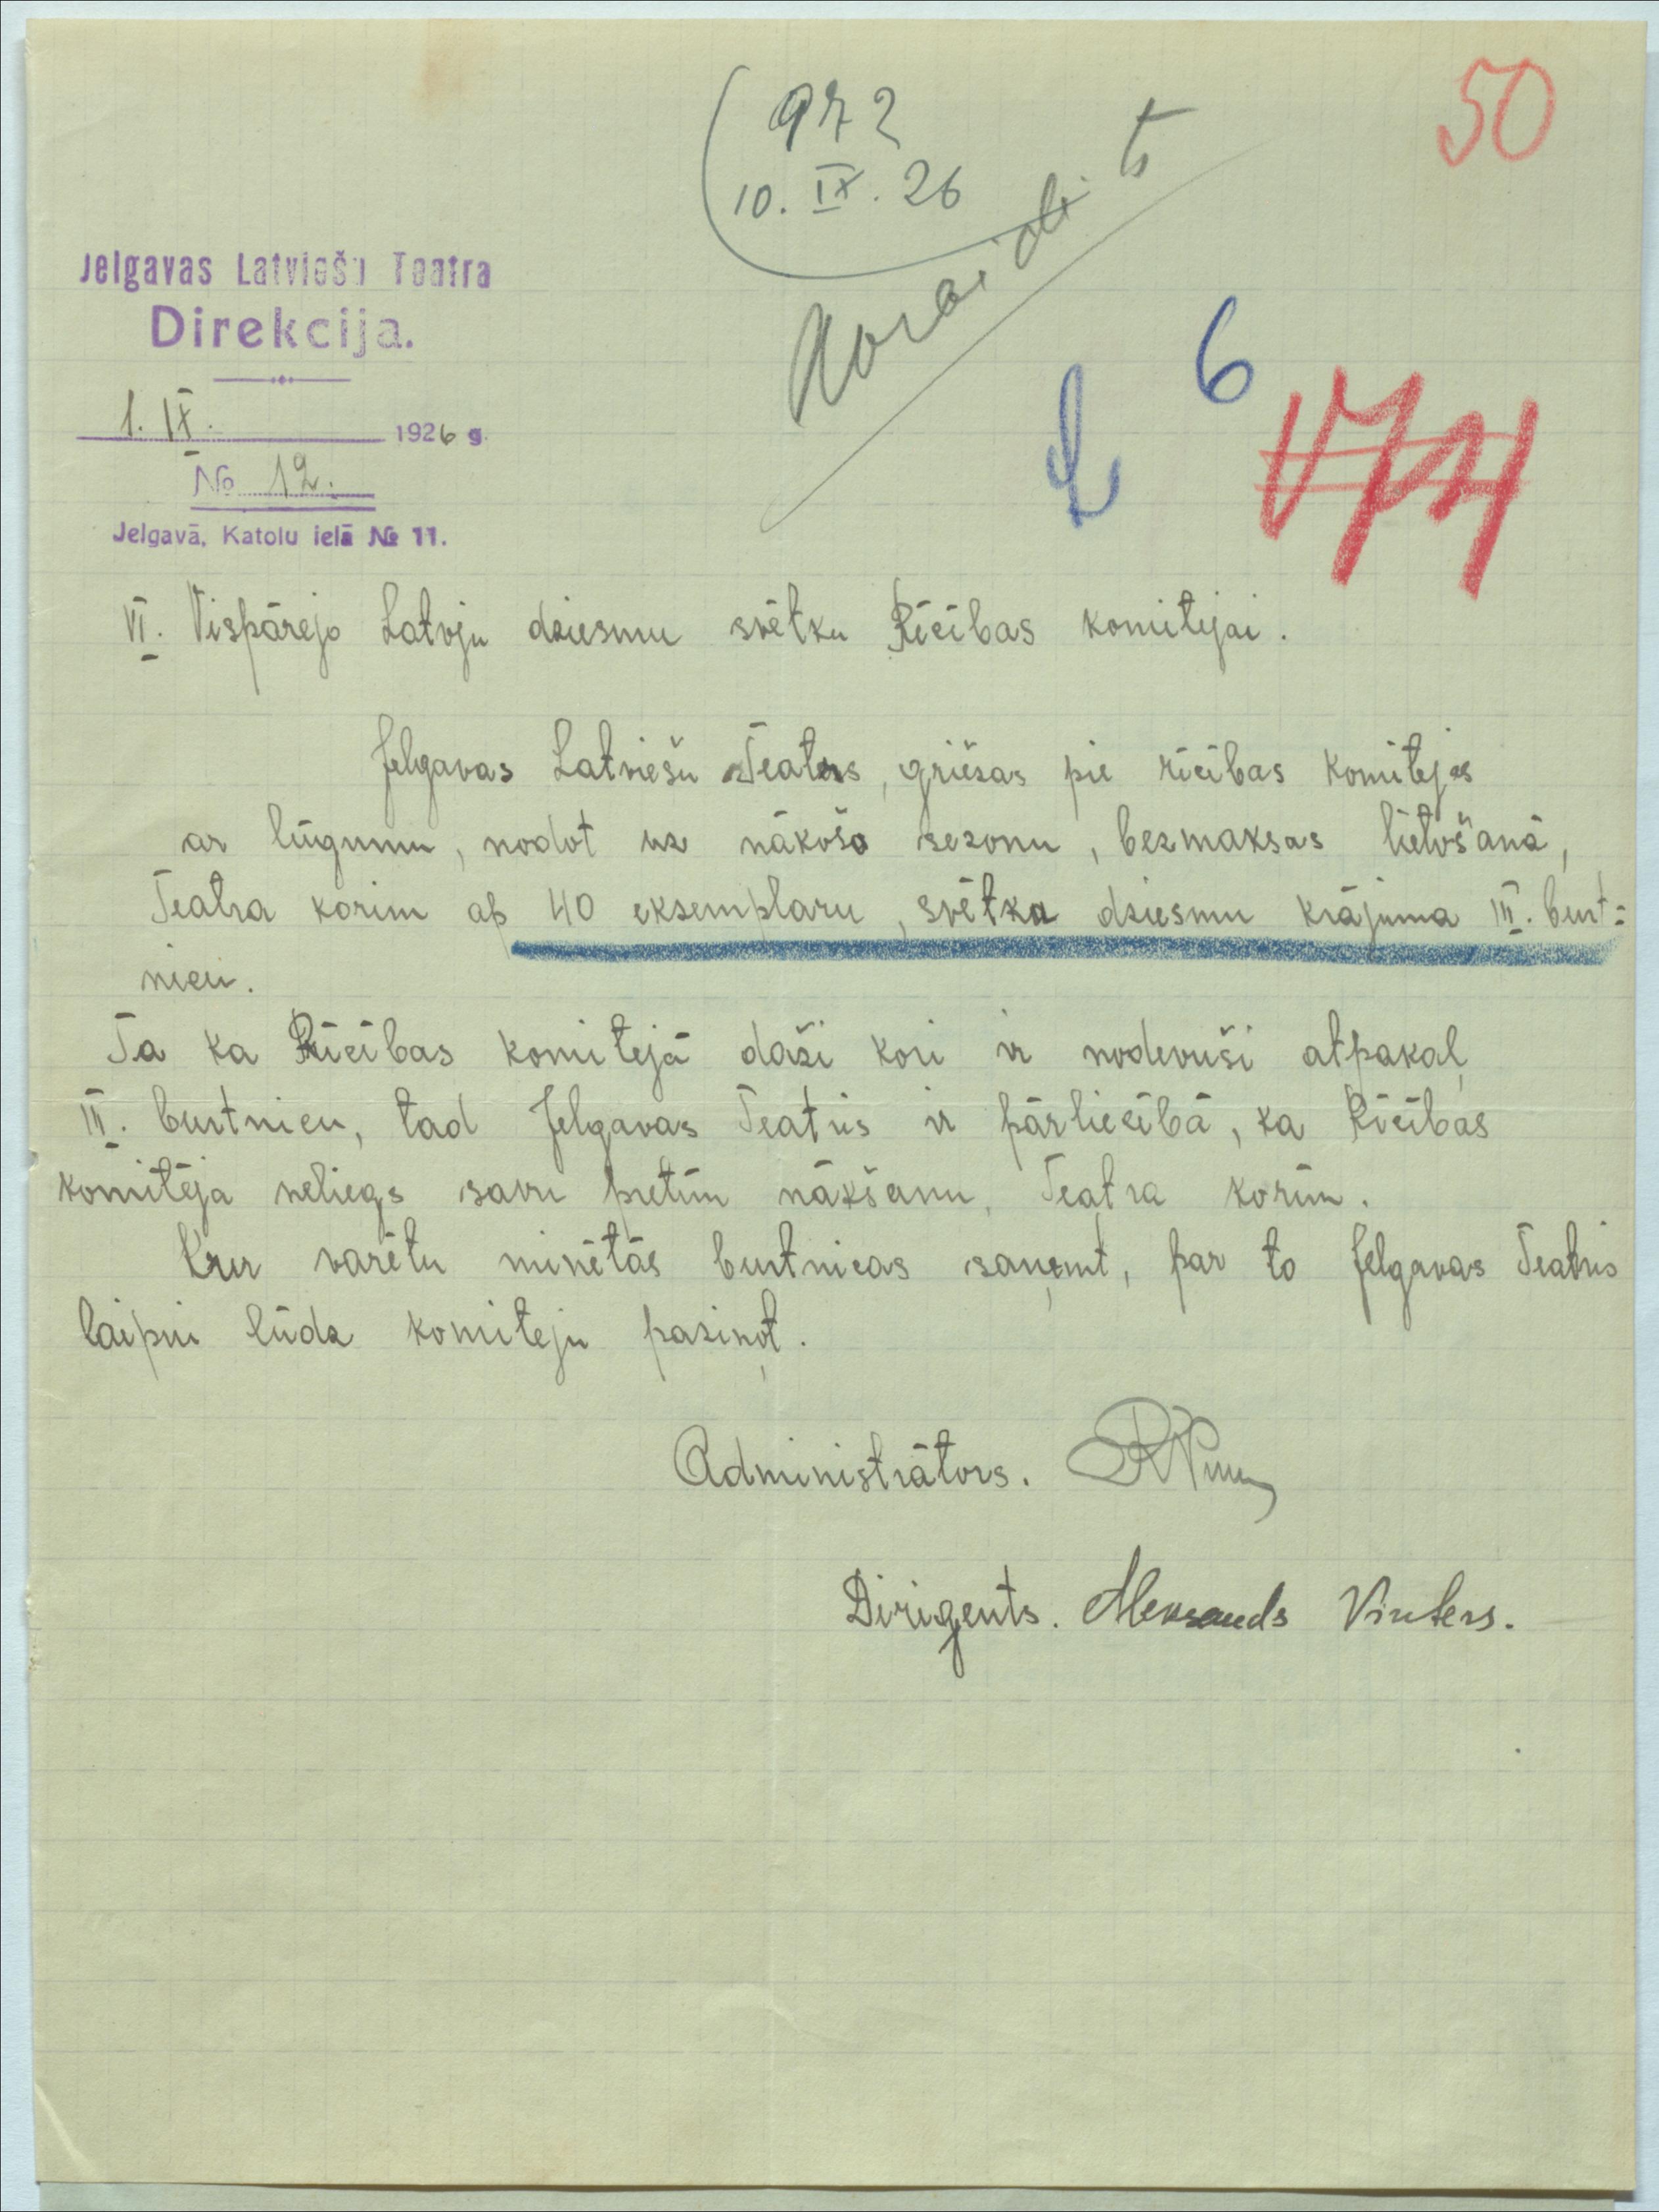 972
10. IX. 26
50
Noraidīts
6
Jelgavas Latviešu Teatra
Direkcija.
1. IX. 1926 g.
No 12.
Jelgavā, Katoļu ielā № 11.
VI. Vispārejo Latvju dziesmu svētku Rīcības komitejai.
Jelgavas Latviešu Teatrs, griežas pie rīcības komitejas
ar lūgumu, nodot uz nākošo sezonu, bezmaksas lietošanā,
Teatra korim ap 40 eksemplaru, svētku dziesmu krājuma III. burt=
nicu.
Ta ka Rīcības komitejā daži kori ir nodevuši atpakaļ
III. burtnicu, tad Jelgavas Teatris ir pārliecībā, ka Rīcības
komitēja neliegs savu pretim nākšanu, Teatra korim.
Kur varētu minētās burtnicas saņemt, par to Jelgavas Teatris
laipni lūdz komiteju paziņot.
Administrātors.
Dirigents. Aleksands Vinters.